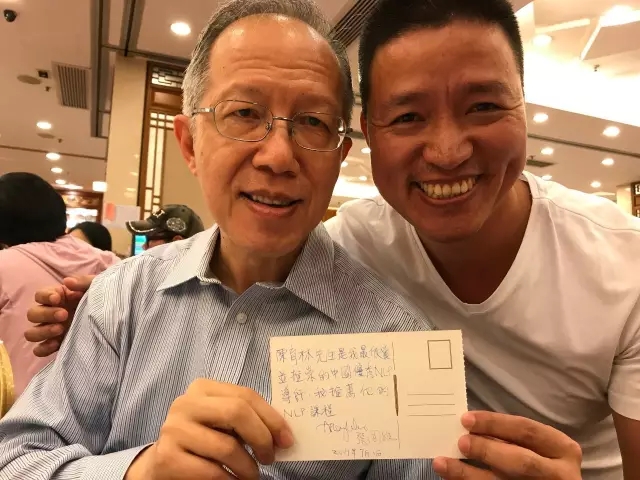 陳育林先生是我最
並推崇的中國優秀NLP
導師,我推薦他的
NLP 課程
2017年7月